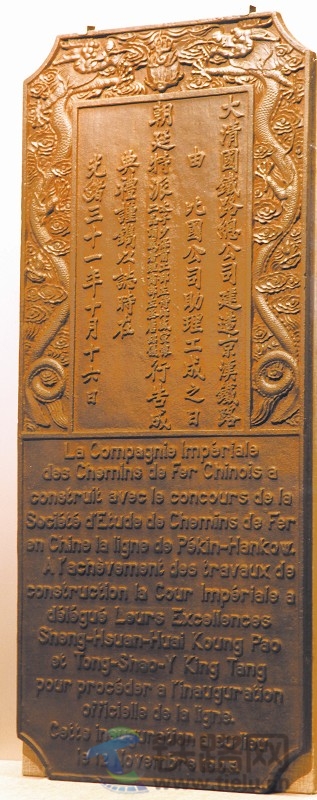 大清國鐵路總公司建造京漢鐵路
由 比國公司助理工成之日
朝廷特派 行告成
典禮謹鐫以誌時在
光緒三十一年十月十六日
La Compagnie Impériale
des Chemins de Fer Chinois a
construit avec le concours de la
Société d'Etude de Chemins de Fer
en Chine la ligne de Pékin-Hankow.
A l'achèvement des travaux de
construction la Cour Impériale a
délégué Leurs Excellences
Sheng-Hsuan-Huai Koung Pao
et Tong-Shao-Y King Tang
pour procéder a l'inauguration
officielle de la ligne.
Cette inauguration a eu lieu
le 12 Novembre 1905.